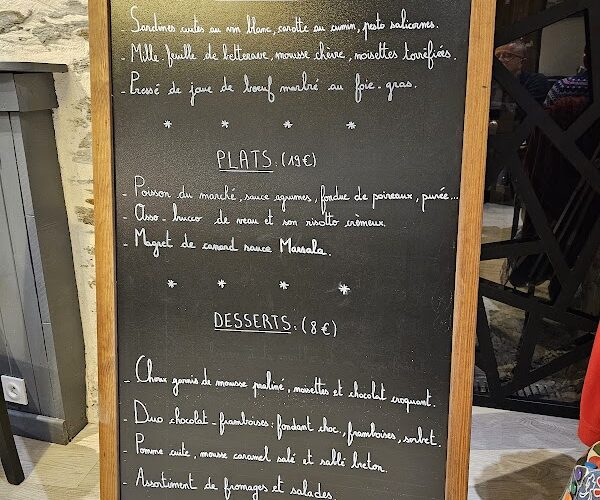 - Sardines cuites au vin blanc, carotte au cumin, pesto salicornes.
- Mille-feuille de betterave, mousse chèvre, noisettes torréfiées.
- Pressé de joue de boeuf marbré au foie-gras.
* * * *
PLATS: (19€)
- Poisson du marché, sauce agrumes, fondue de poireaux, purée...
- Osso-bucco de veau et son risotto crèmeux.
- Magret de canard sauce Marsala.
* * * *
DESSERTS: (8€)
- Choux garnis de mousse praliné, noisettes et chocolat croquant.
- Duo chocolat-framboises: fondant choc, framboises, sorbet.
- Pomme cuite, mousse caramel salé et sablé breton.
- Assortiment de fromages et salades.